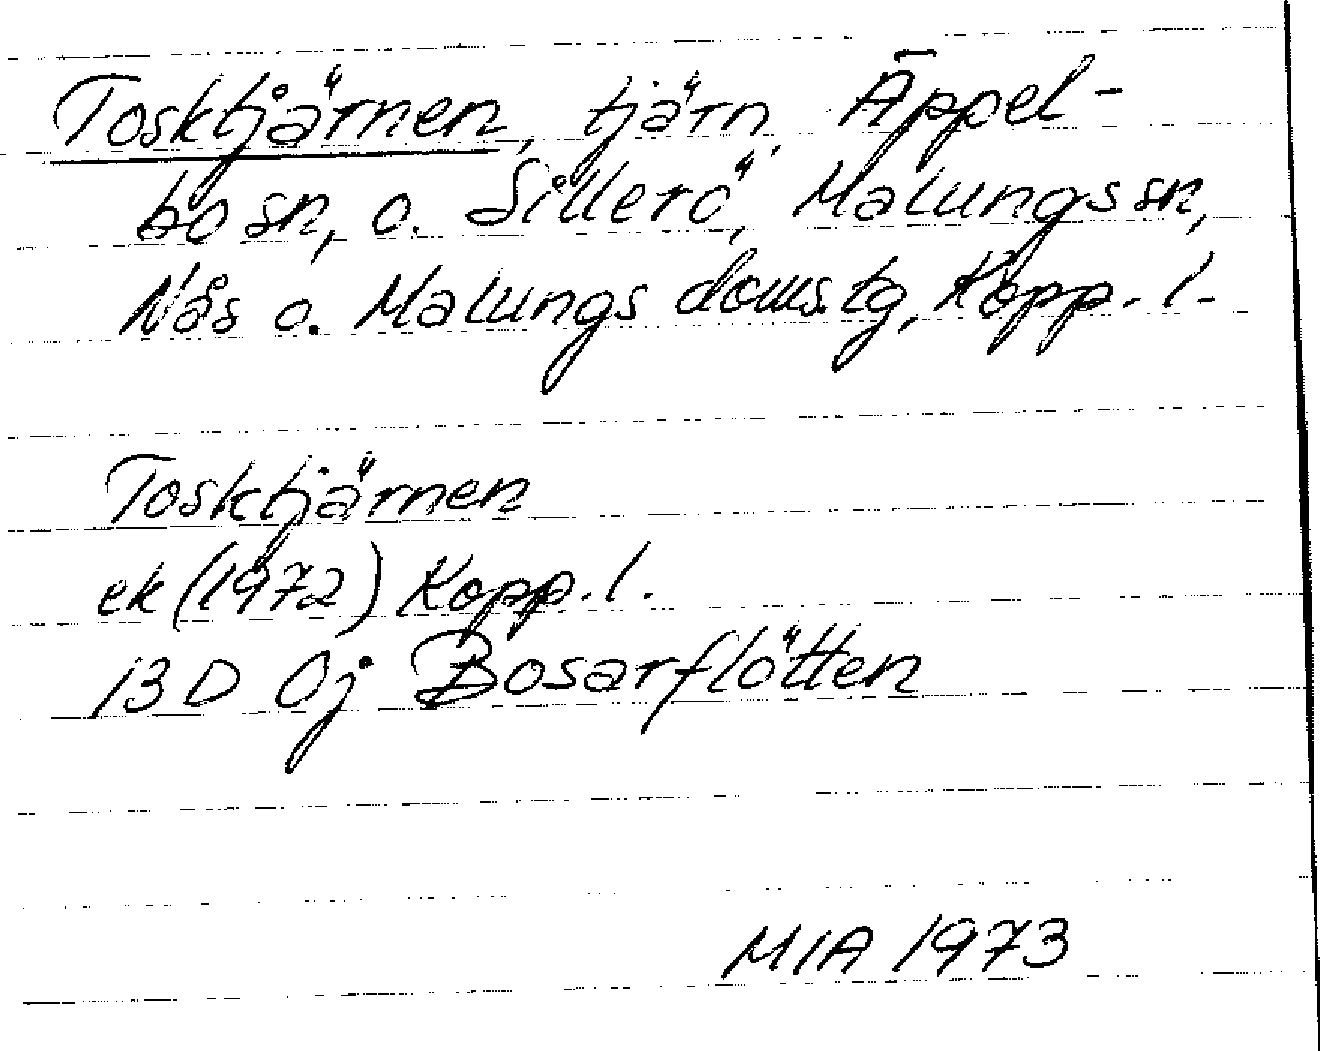 Tosktjärnen, tjärn, Äppel-
bo sn, o. Sillerö, Malungs sn,
Nås o. Malungs doms.tg, Kopp. l.
Tosktjärnen
ek (1972) Kopp. l.
13 D 0j Bosarflötten
MIA 1973